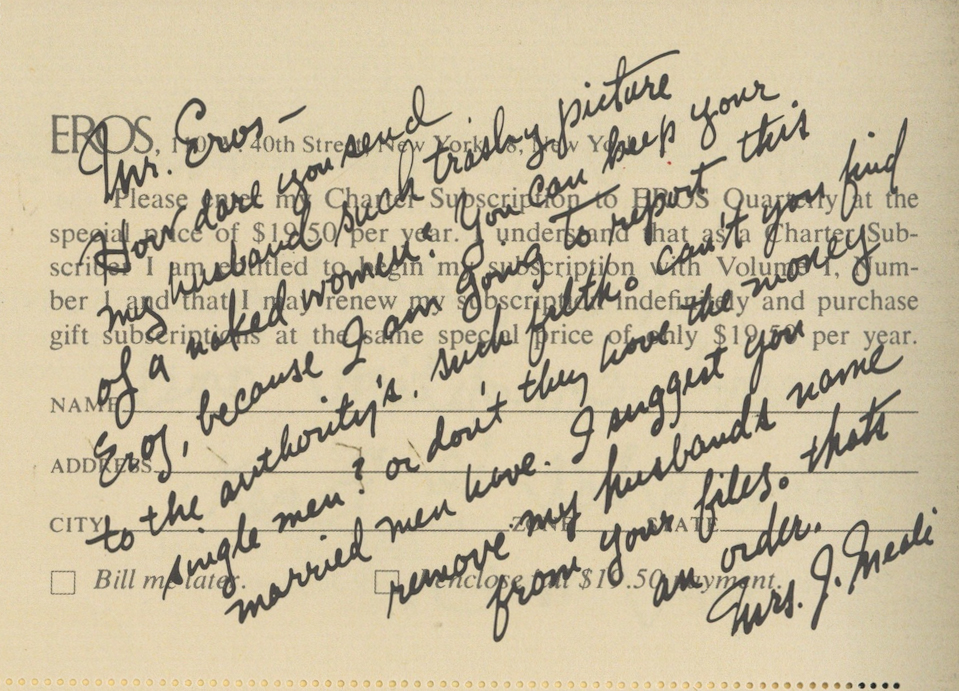 EROS, 40th Street, New York 18, New York
Please enter my Charter Subscription to EROS Quarterly at the
special price of $19.50 per year. I understand that as a Charter Sub-
scriber I am entitled to begin my subscription with Volume 1, Num-
ber 1 and that I may renew my subscription indefinitely and purchase
gift subscriptions at the same special price of only $19.50 per year.
NAME
ADDRESS
CITY ZONE STATE
Bill me later. I enclose full $19.50 payment.
Mr. Eros -
How dare you send
my husband such trashy picture
of a naked women? You can keep your
Eros, because I am going to report this
to the authority's. such filth. can't you find
single men? or don't they have the money
married men have. I suggest you
remove my husbands name
from your files. thats
an order.
Mrs. J. Meali